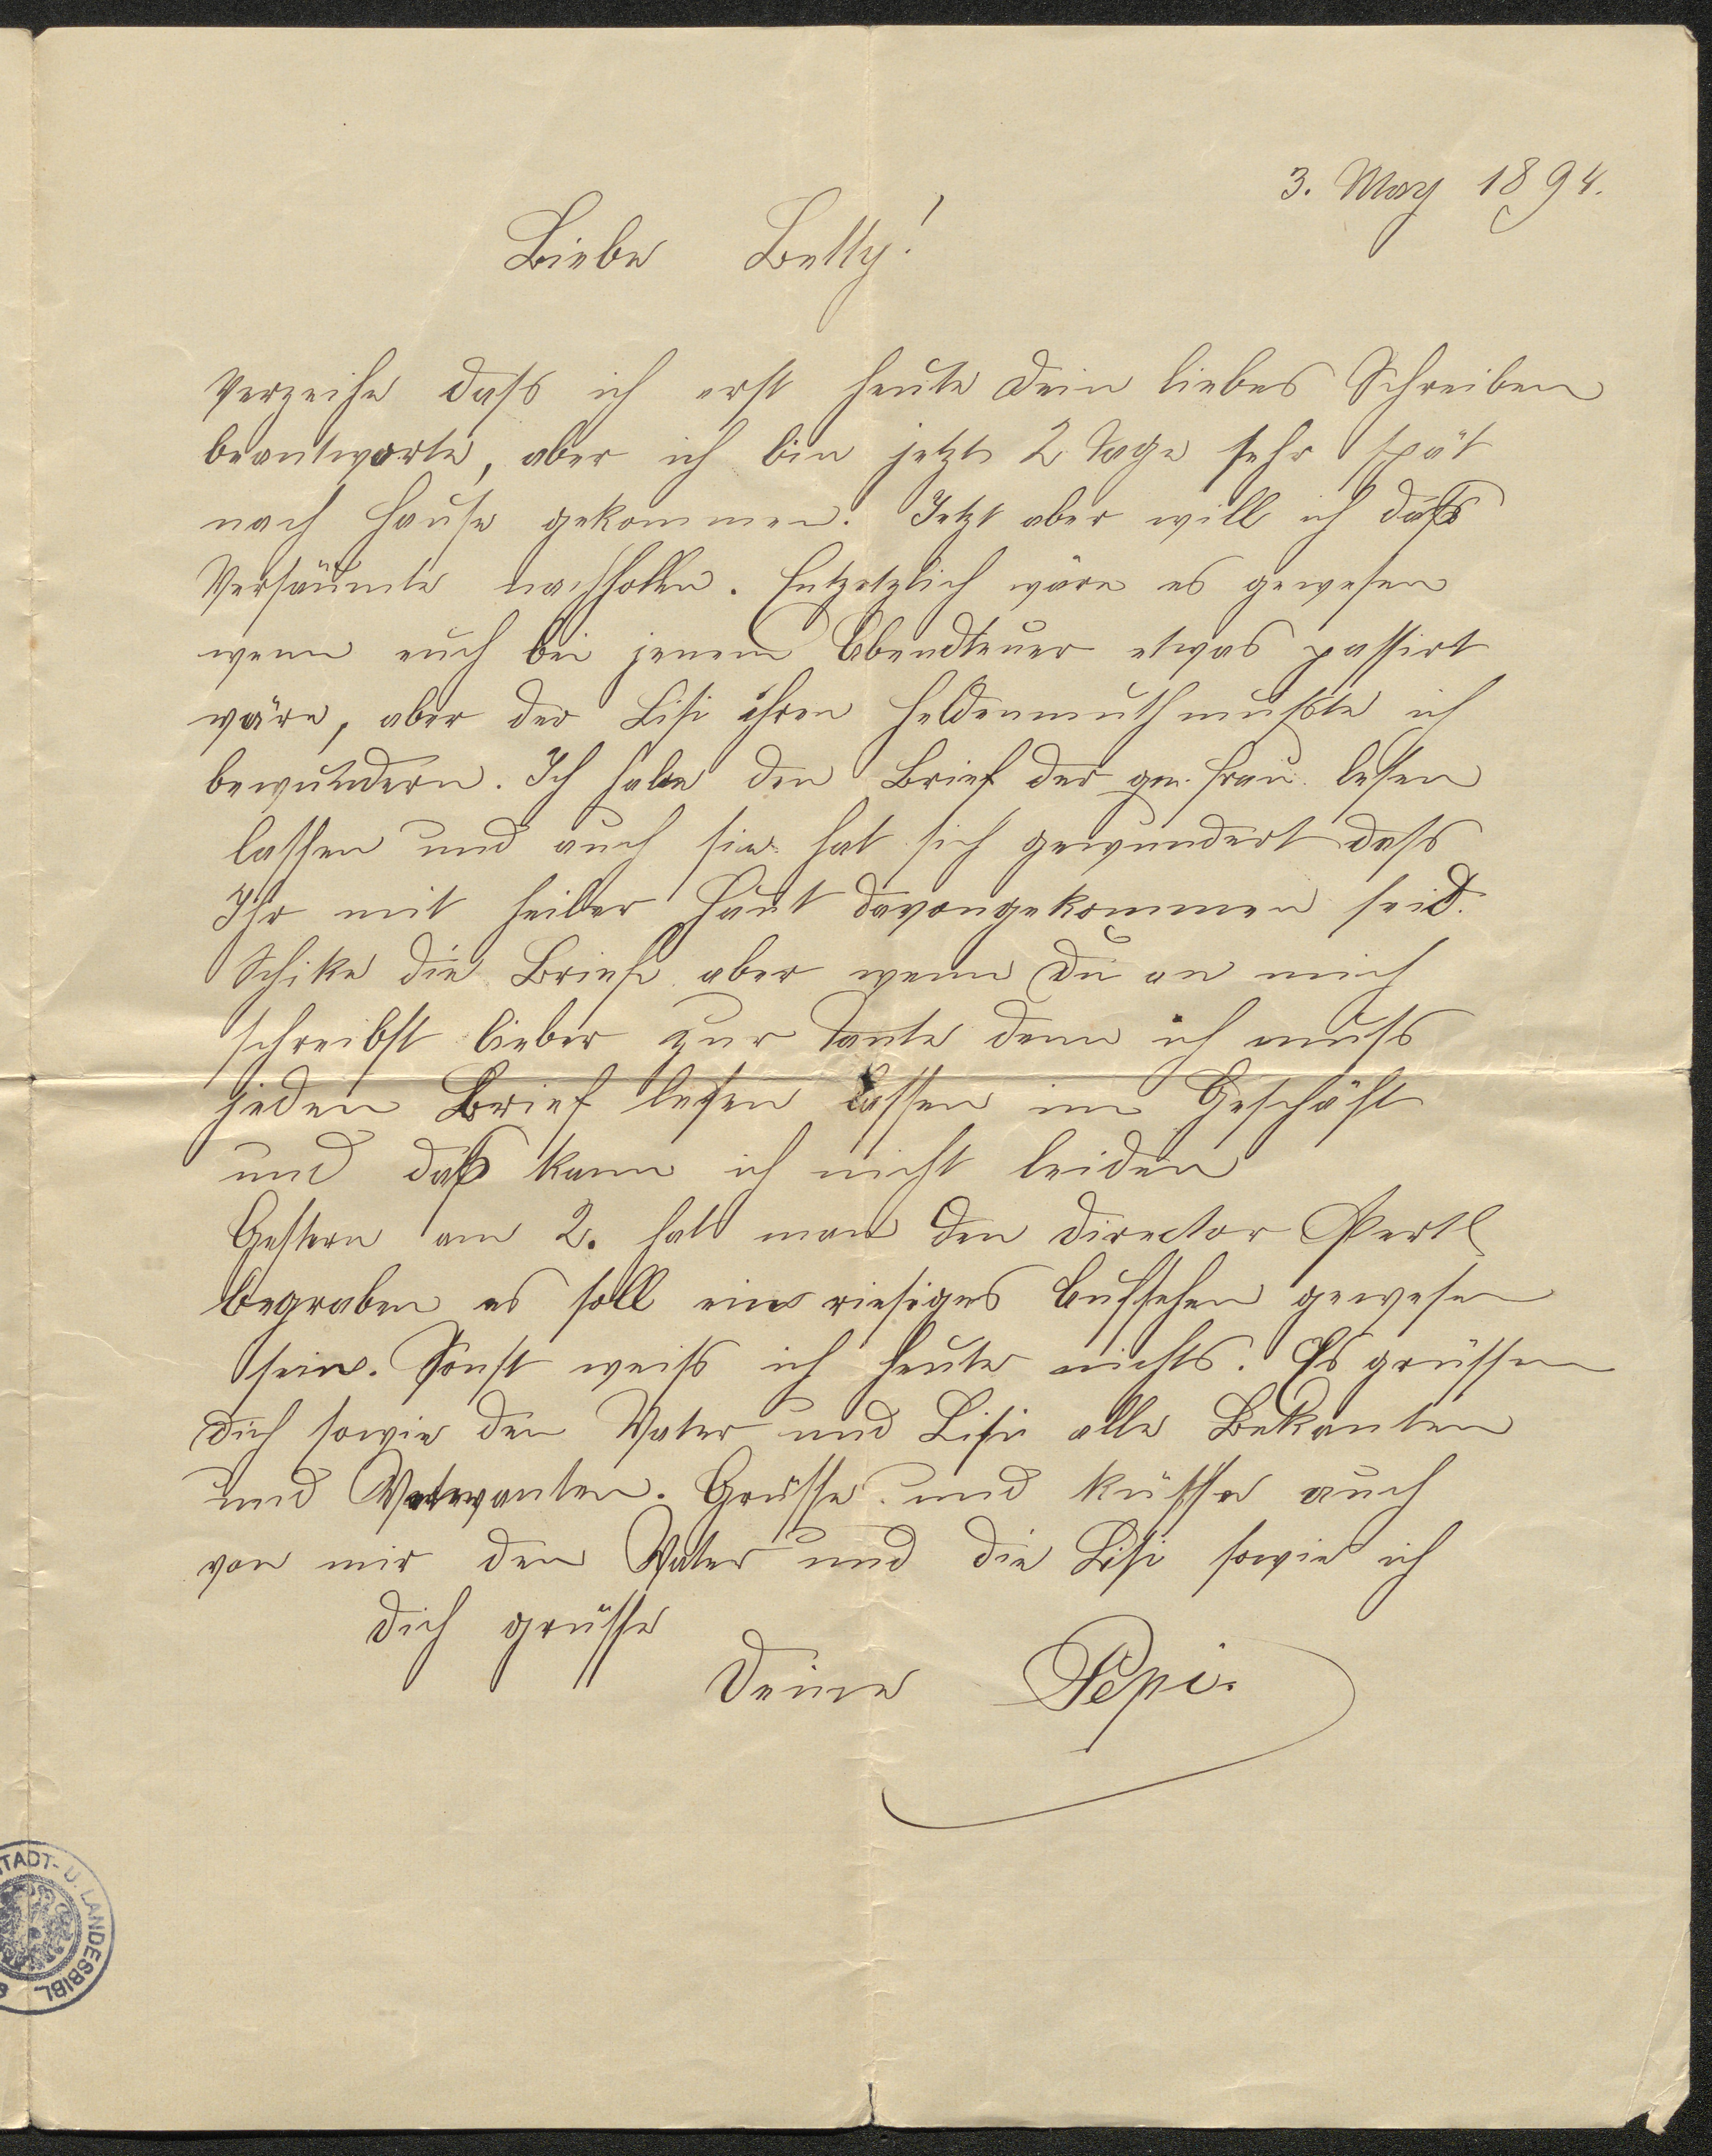 3. May 1894.
Liebe Betty!
Verzeihe dass ich erst heute dein liebes Schreiben
beantworte, aber ich bin jetzt 2 Tage sehr spät
nach Hause gekommen. Jetzt aber will ich dass
Versäumte nachhollen. Entzetzlich wäre es gewesen
wenn euch bei jenem Abendteuer etwas passirt
wäre, aber der Lisi ihren Heldenmuth mußte ich
bewundern. Ich habe den Brief der gn. Frau lesen
lassen und auch sie hat sich gewundert dass
Ihr mit heiler Haut davongekommen seid.
Schike die Briefe aber wenn Du an mich
schreibst lieber zur Tante denn ich muss
jeden Brief lesen lassen im Geschäft
und daß kann ich nicht leiden
Gestern am 2. hat man den Director Pertl
begraben es soll ein riesiges Aufsehen gewesen
sein. Sonst weiss ich heute nichts. Es grüssen
dich sowie den Vater und Lisi alle Bekanten
und Verwanten. Grüsse und küsse auch
von mir den Vater und die Lisi sowie ich
dich grüsse
Deine Pepi.
STADT- U. LANDESBIBL.